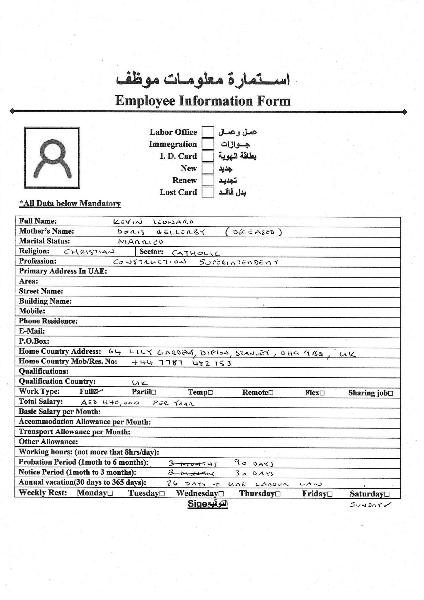 استمارة معلومات موظف
Employee Information Form
Labor Office
Immegration جوازات
I. D. Card بطاقة الهوية
New جديد
Renew تجديد
Lost Card بدل فاقد
*All Data below Mandatory
Full Name: KEVIN LEONARD
Mother's Name: DORIS BELLERBY (DECEASED)
Marital Status: MARRIED
Religion: CHRISTIAN Sector: CATHOLIC
Profession: CONSTRUCTION SUPERINTENDENT
Primary Address In UAE:
Area:
Street Name:
Building Name:
Mobile:
Phone Residence:
E-Mail:
P.O.Box:
Home Country Address: 64 LILY GARDENS, DIPTON, STANLEY, UK
Home Country Mob/Res. No:
Qualifications:
Qualification Country: UK
Work Type: Full Partil Temp Remote Flex Sharing job
Total Salary: AED 440,000 PER YEAR
Basic Salary per Month:
Accommodation Allowance per Month:
Transport Allowance per Month:
Other Allowance:
Working hours: (not more that 8hrs/day):
Probation Period (1moth to 6 months): 3 MONTHS 90 DAYS
Notice Period (1moth to 3 months): MONTHS 30 DAYS
Annual vacation(30 days to 365 days): 26 DAYS + UAE LABOUR LAW
Weekly Rest: Monday Tuesday Wednesday Thursday Friday Saturday
Sige التوقيع SUNDAY